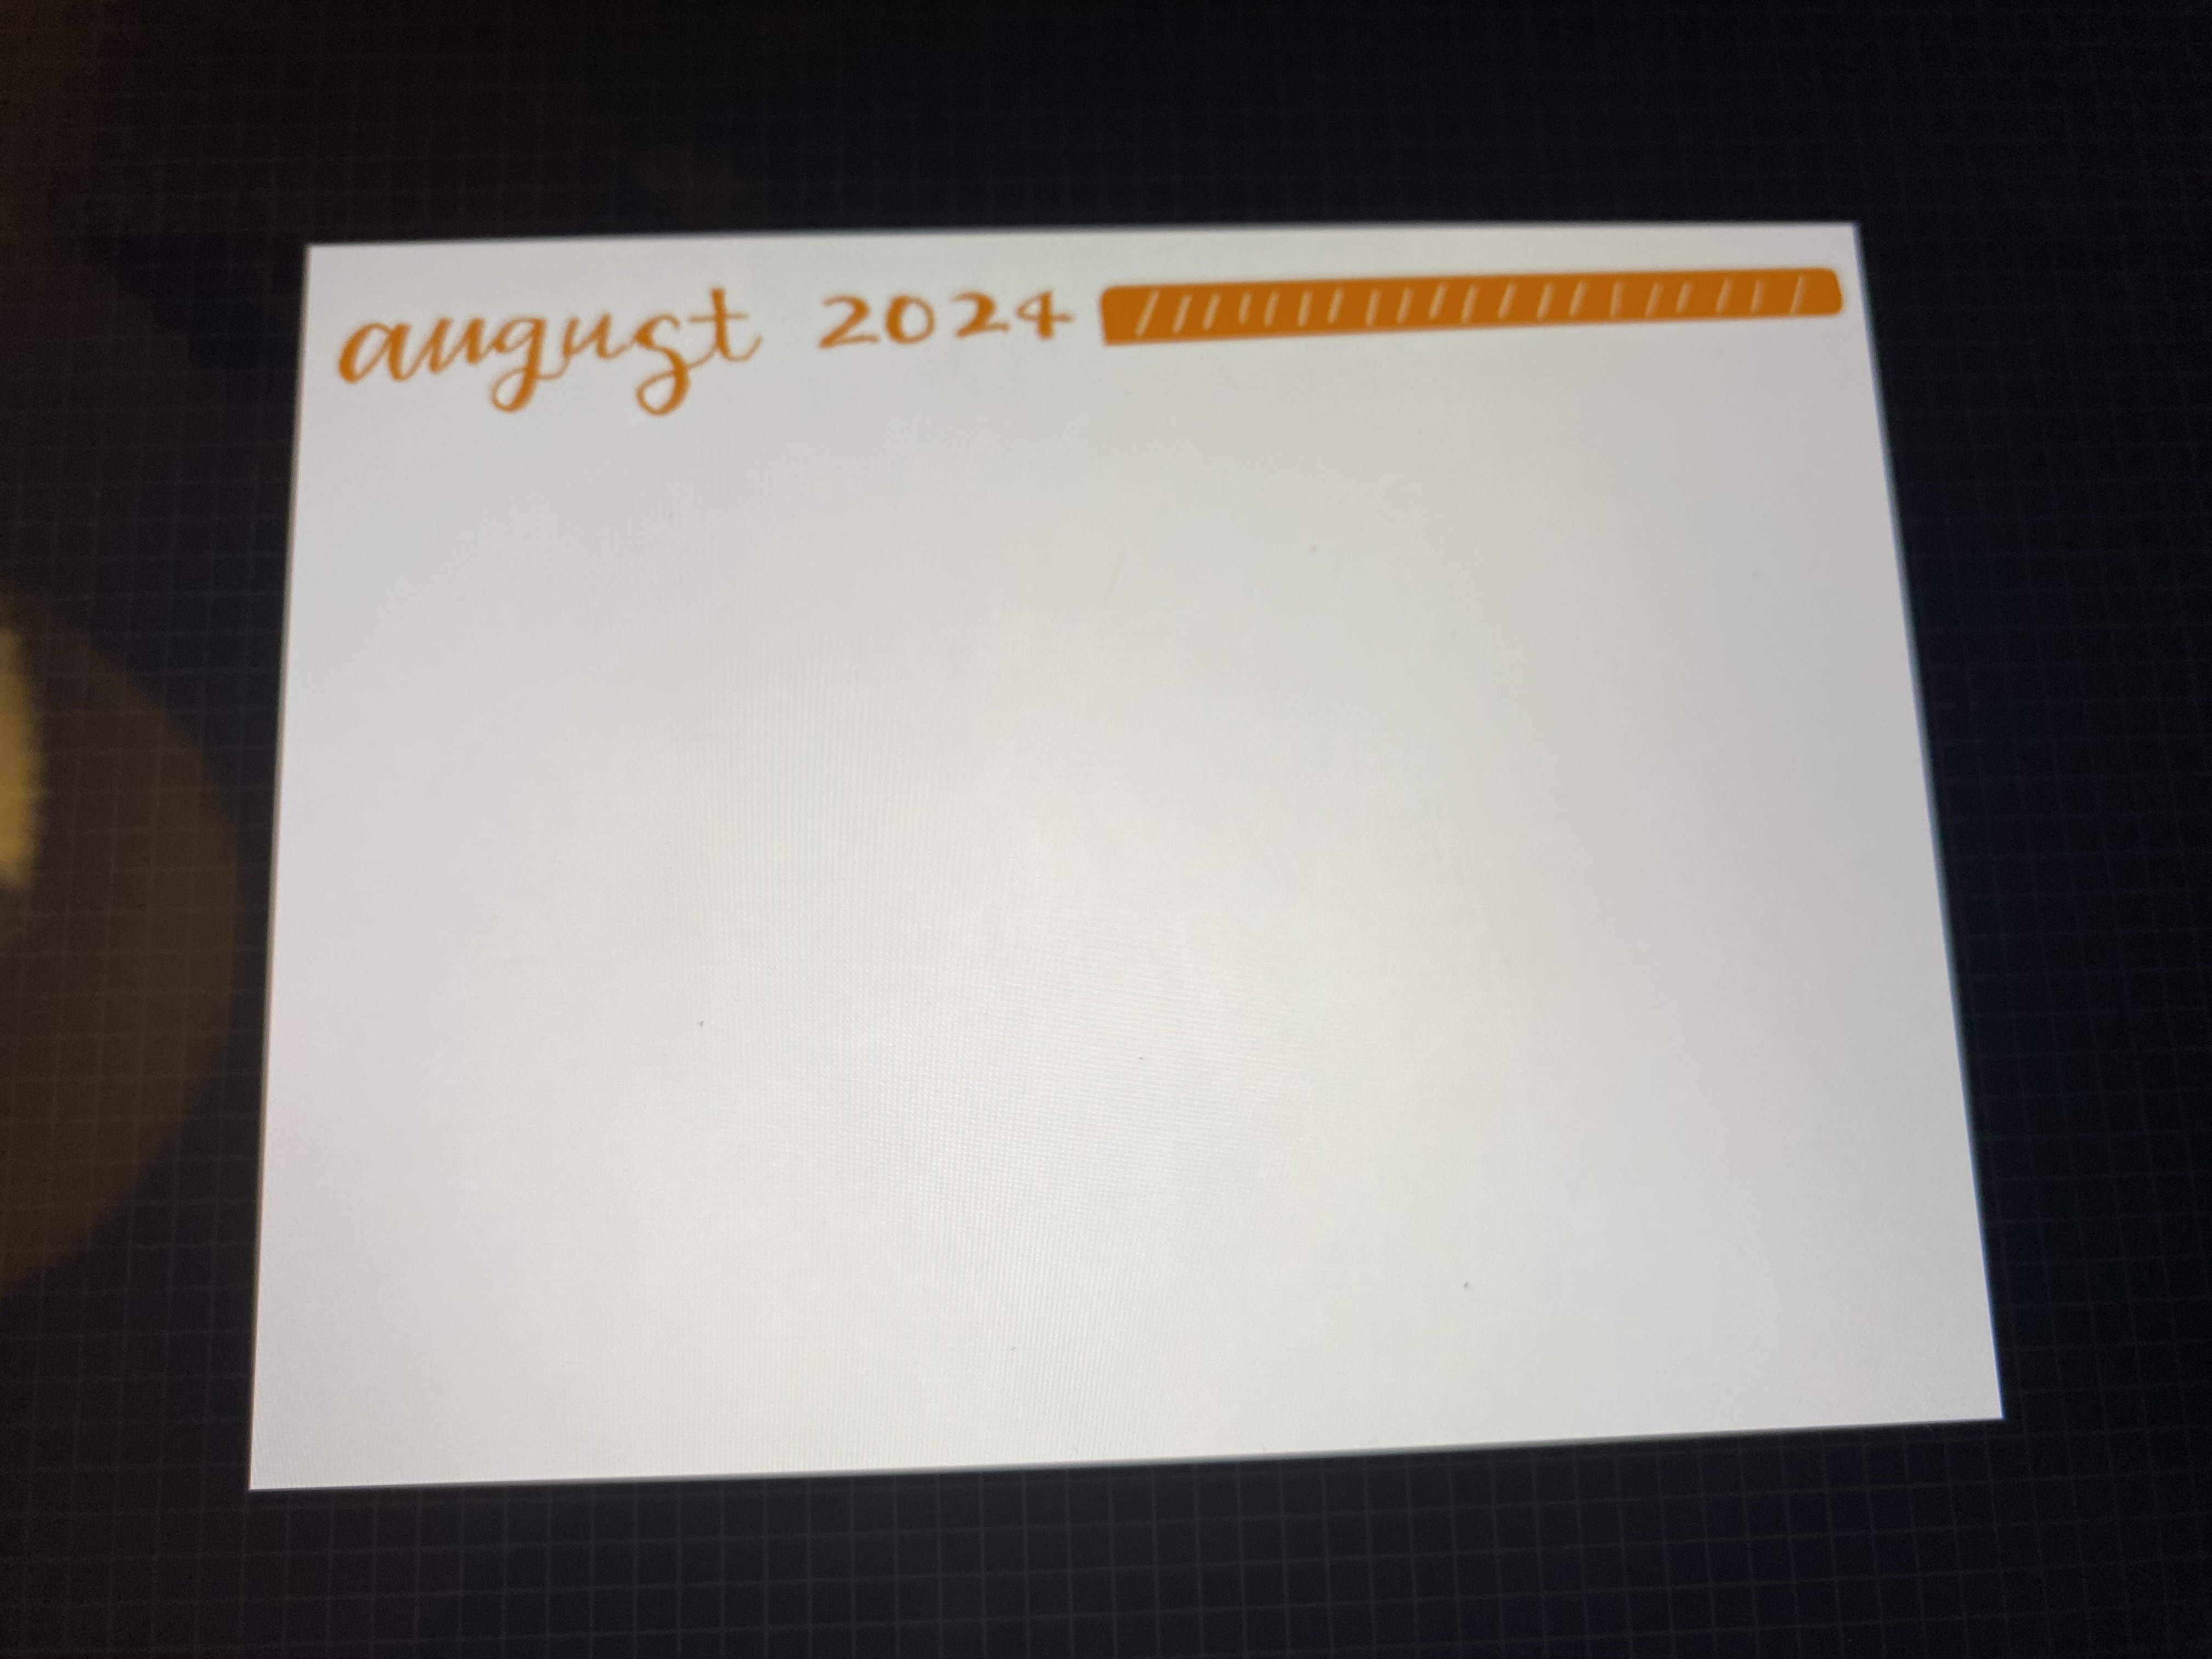 august 2024